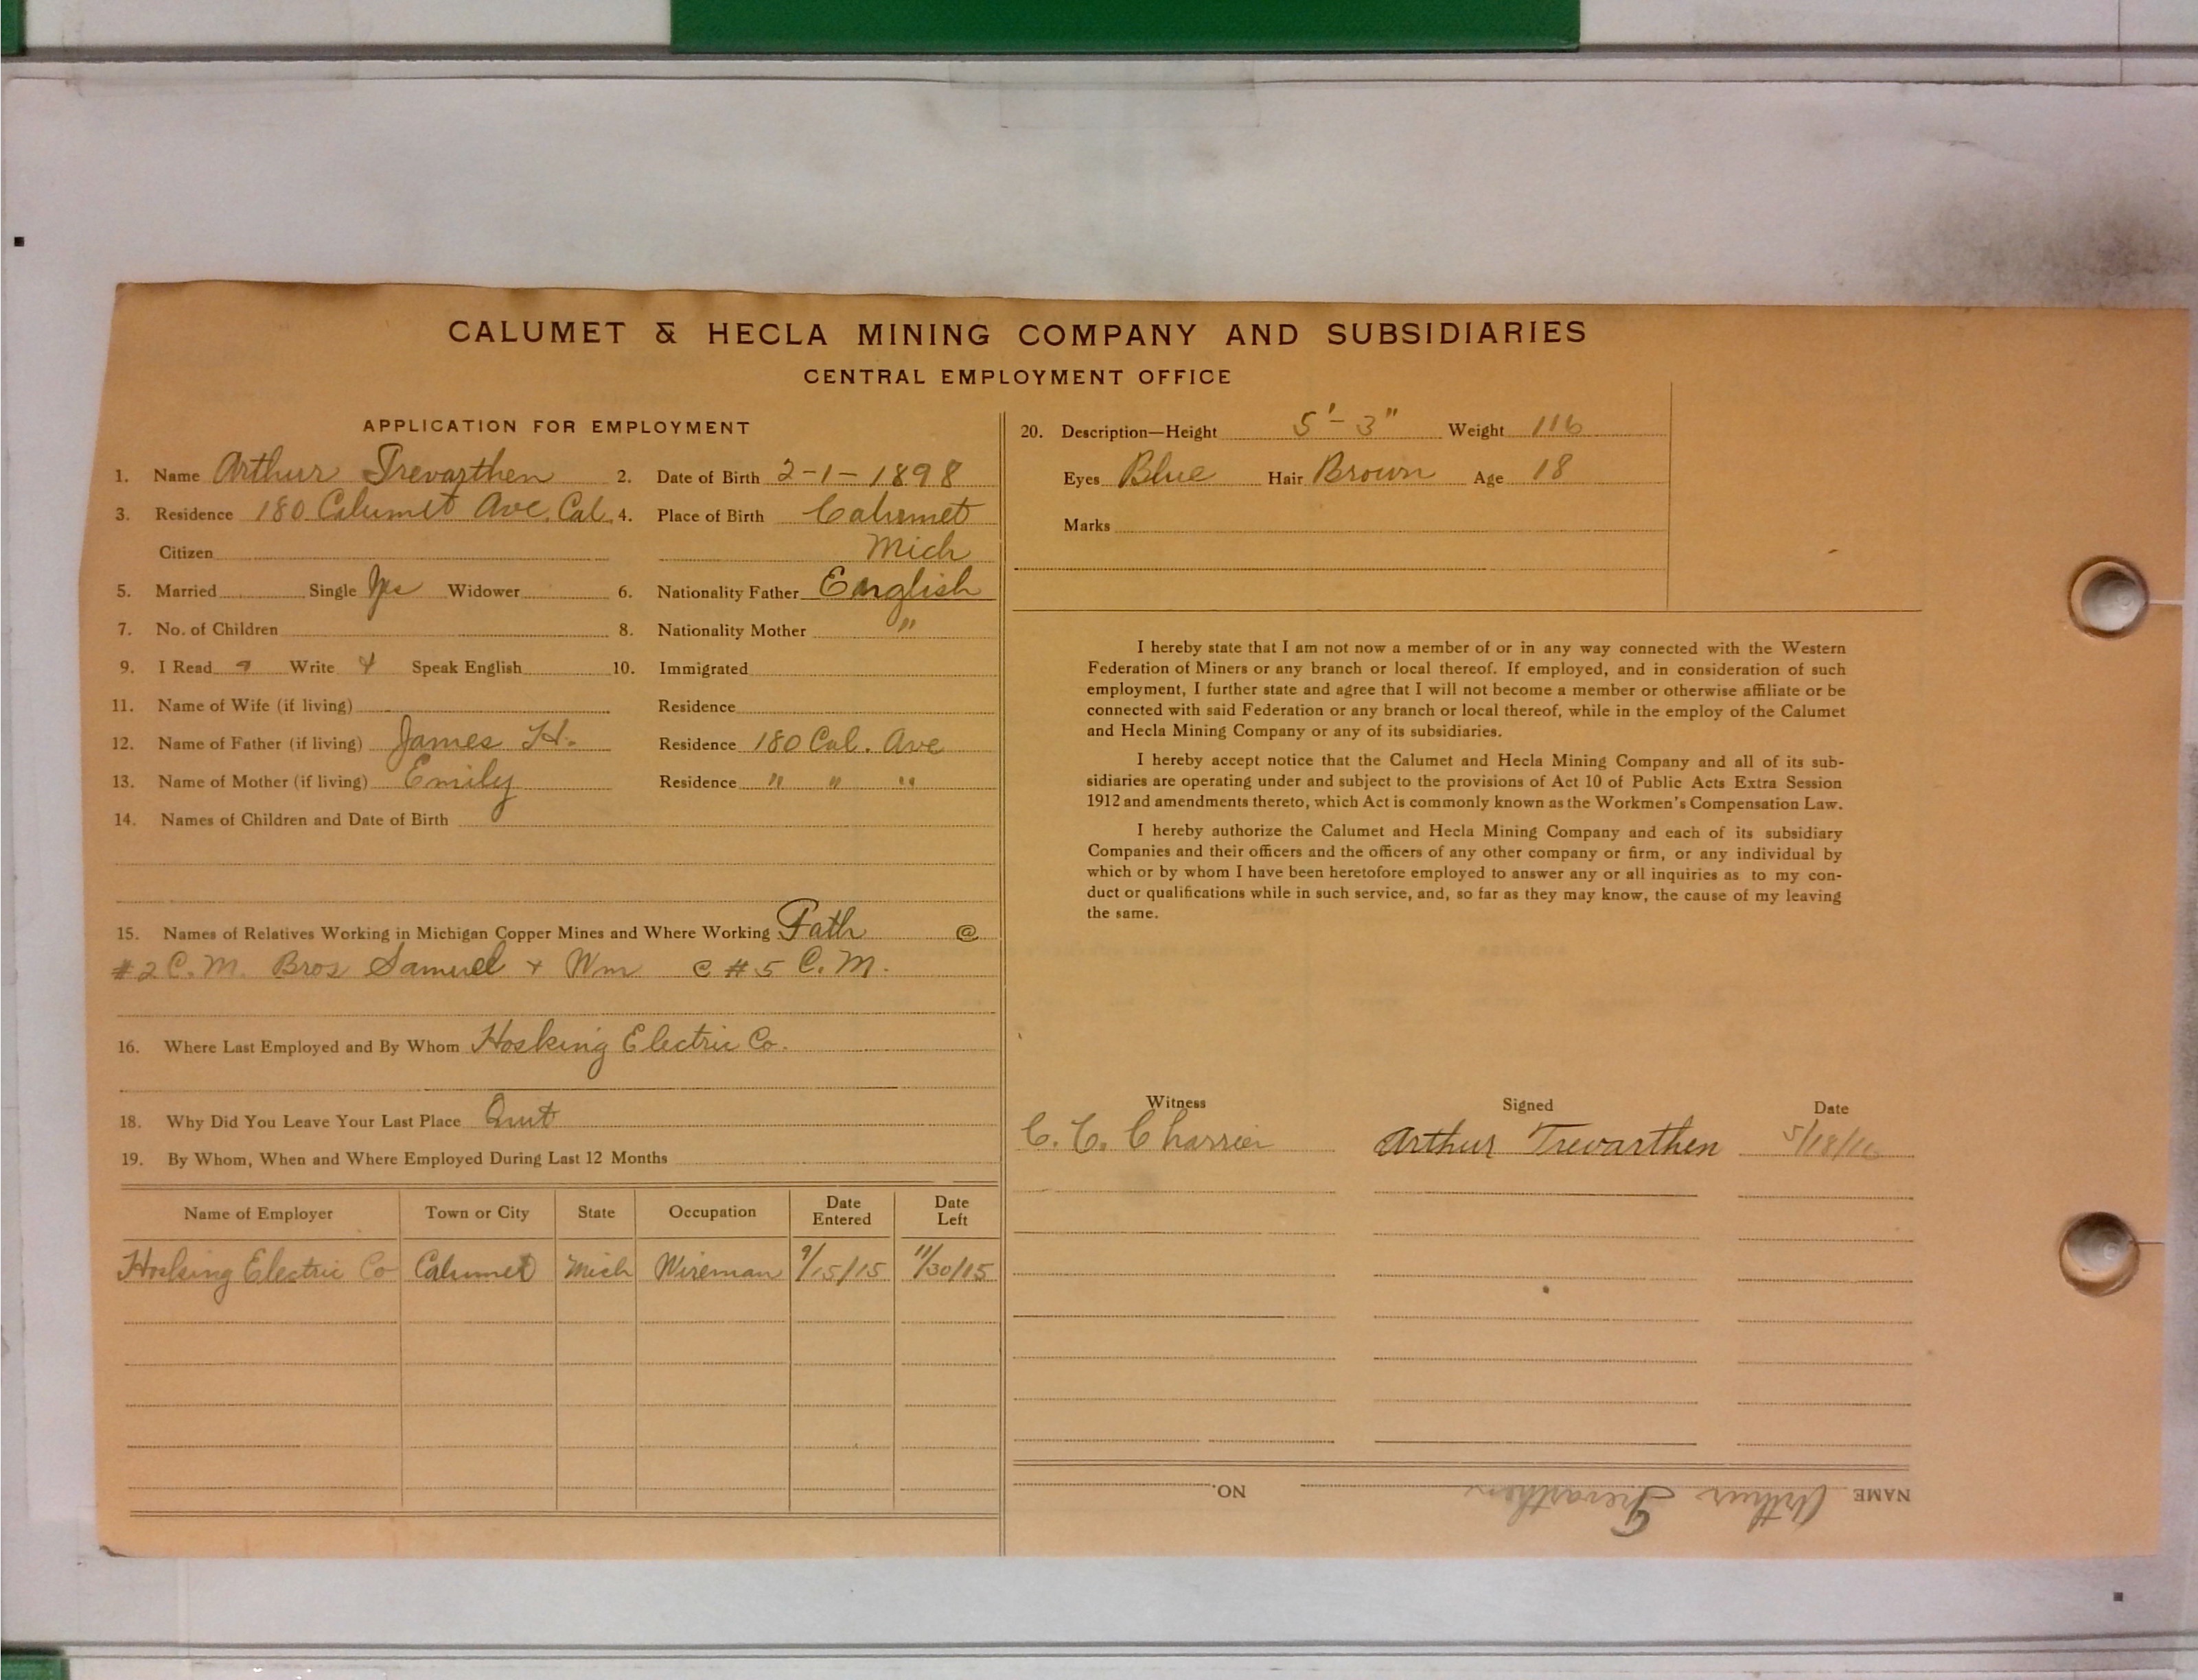 CALUMET & HECLA MINING COMPANY AND SUBSIDIARIES
CENTRAL EMPLOYMENT OFFICE
APPLICATION FOR EMPLOYMENT
1. Name Arthur Trevarthen 2. Date of Birth 2-1-1898
3. Residence 180 Calumet Ave. Cal. 4. Place of Birth Calumet
Citizen Mich
5. Married Single Yes Widower 6. Nationality Father English
7. No. of Children 8. Nationality Mother "
9. I Read Write Speak English 10. Immigrated
11. Name of Wife (if living) Residence
12. Name of Father (if living) James H. Residence 180 Cal. Ave
13. Name of Mother (if living) Emily Residence " " "
14. Names of Children and Date of Birth
15. Names of Relatives Working in Michigan Copper Mines and Where Working Fath @
#2 C. M. Bros Samuel + Wm @ #5 C. M.
16. Where Last Employed and By Whom Hosking Electric Co.
18. Why Did You Leave Your Last Place Quit
19. By Whom, When and Where Employed During Last 12 Months
Name of Employer Town or City State Occupation Date Entered Date Left
Hosking Electric Co Calumet Mich Wireman 9/15/15 11/30/15
20. Description—Height 5'-3" Weight 116
Eyes Blue Hair Brown Age 18
Marks
I hereby state that I am not now a member of or in any way connected with the Western
Federation of Miners or any branch or local thereof. If employed, and in consideration of such
employment, I further state and agree that I will not become a member or otherwise affiliate or be
connected with said Federation or any branch or local thereof, while in the employ of the Calumet
and Hecla Mining Company or any of its subsidiaries.
I hereby accept notice that the Calumet and Hecla Mining Company and all of its sub-
sidiaries are operating under and subject to the provisions of Act 10 of Public Acts Extra Session
1912 and amendments thereto, which Act is commonly known as the Workmen's Compensation Law.
I hereby authorize the Calumet and Hecla Mining Company and each of its subsidiary
Companies and their officers and the officers of any other company or firm, or any individual by
which or by whom I have been heretofore employed to answer any or all inquiries as to my con-
duct or qualifications while in such service, and, so far as they may know, the cause of my leaving
the same.
Witness Signed Date
C. C. Charrier Arthur Trevarthen 5/18/16
NAME Arthur Trevarthen NO.